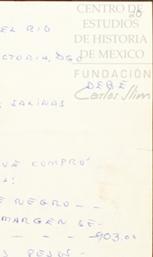 CENTRO DE
ESTUDIOS
DE HISTORIA
DE MEXICO
FUNDACIÓN
Carlos Slim
EL RIO
CTORIA, DGO
DEBE
SALINAS
UE COMPRÓ
E NEGRO - -
MARGEN SE-
- - - - 903.00
PESOS -